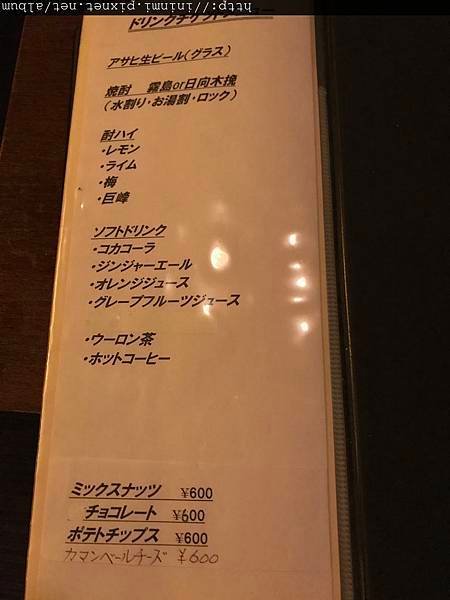 http://ininmi.pixnet.net/album/
ドリンクチケットメニュー
アサヒ生ビール(グラス)
焼酎 霧島or日向木挽
(水割り・お湯割・ロック)
酎ハイ
・レモン
・ライム
・梅
・巨峰
ソフトドリンク
・コカコーラ
・ジンジャーエール
・オレンジジュース
・グレープフルーツジュース
・ウーロン茶
・ホットコーヒー
ミックスナッツ ¥600
チョコレート ¥600
ポテトチップス ¥600
カマンベールチーズ ¥600